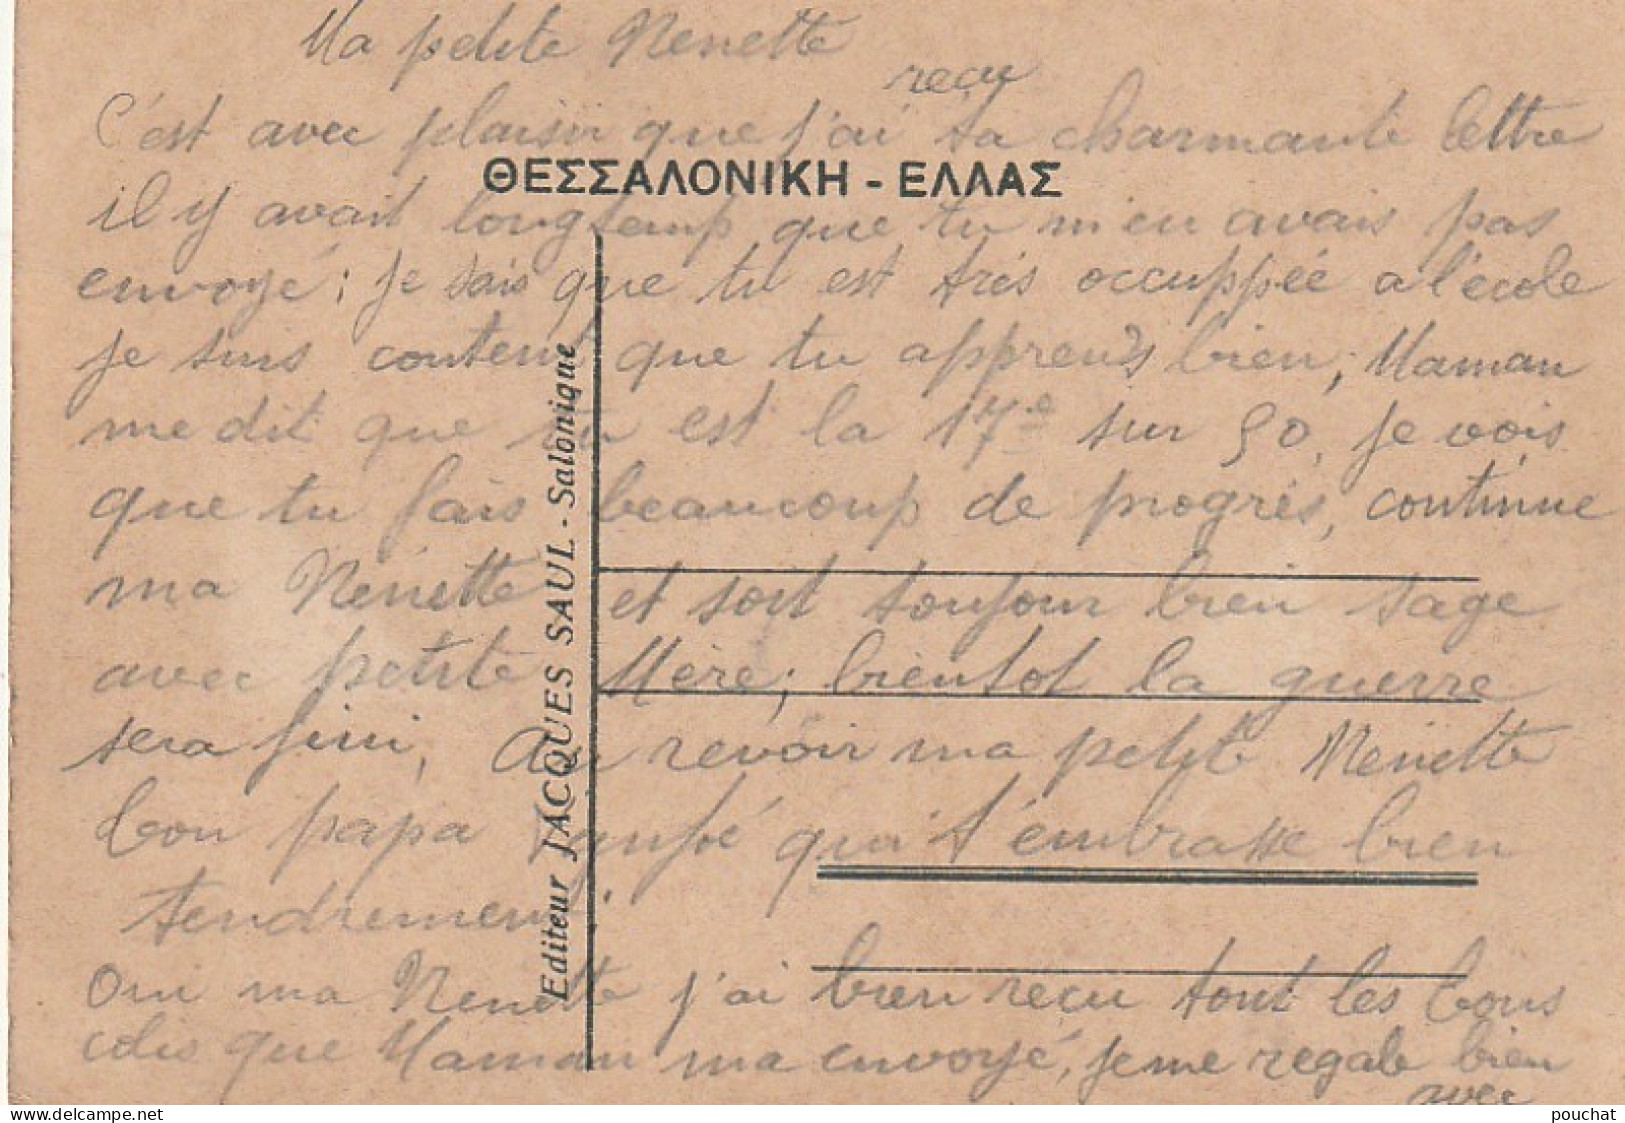 Ma petite Nenette
reçu
C'est avec plaisir que j'ai ta charmante lettre
ΘΕΣΣΑΛΟΝΙΚΗ - ΕΛΛΑΣ
il y avait longtemp que tu m'en avais pas
envoyé; je sais que tu est très occuppée a l'école
je suis content que tu apprends bien, Maman
me dit que tu est la 17e sur 50, je vois
que tu fais beaucoup de progrès, continue
ma Nénette et soit toujour bien sage
avec petite Mère; bientot la guerre
sera fini, Au revoir ma petite Nenette
ton papa qui t'embrasse bien
tendrement.
Oui ma Nenette j'ai bien reçu tout les bons
colis que Maman ma envoyé, je me regale bien
avec
Editeur JACQUES SAUL - Salonique
www.delcampe.net
pouchat